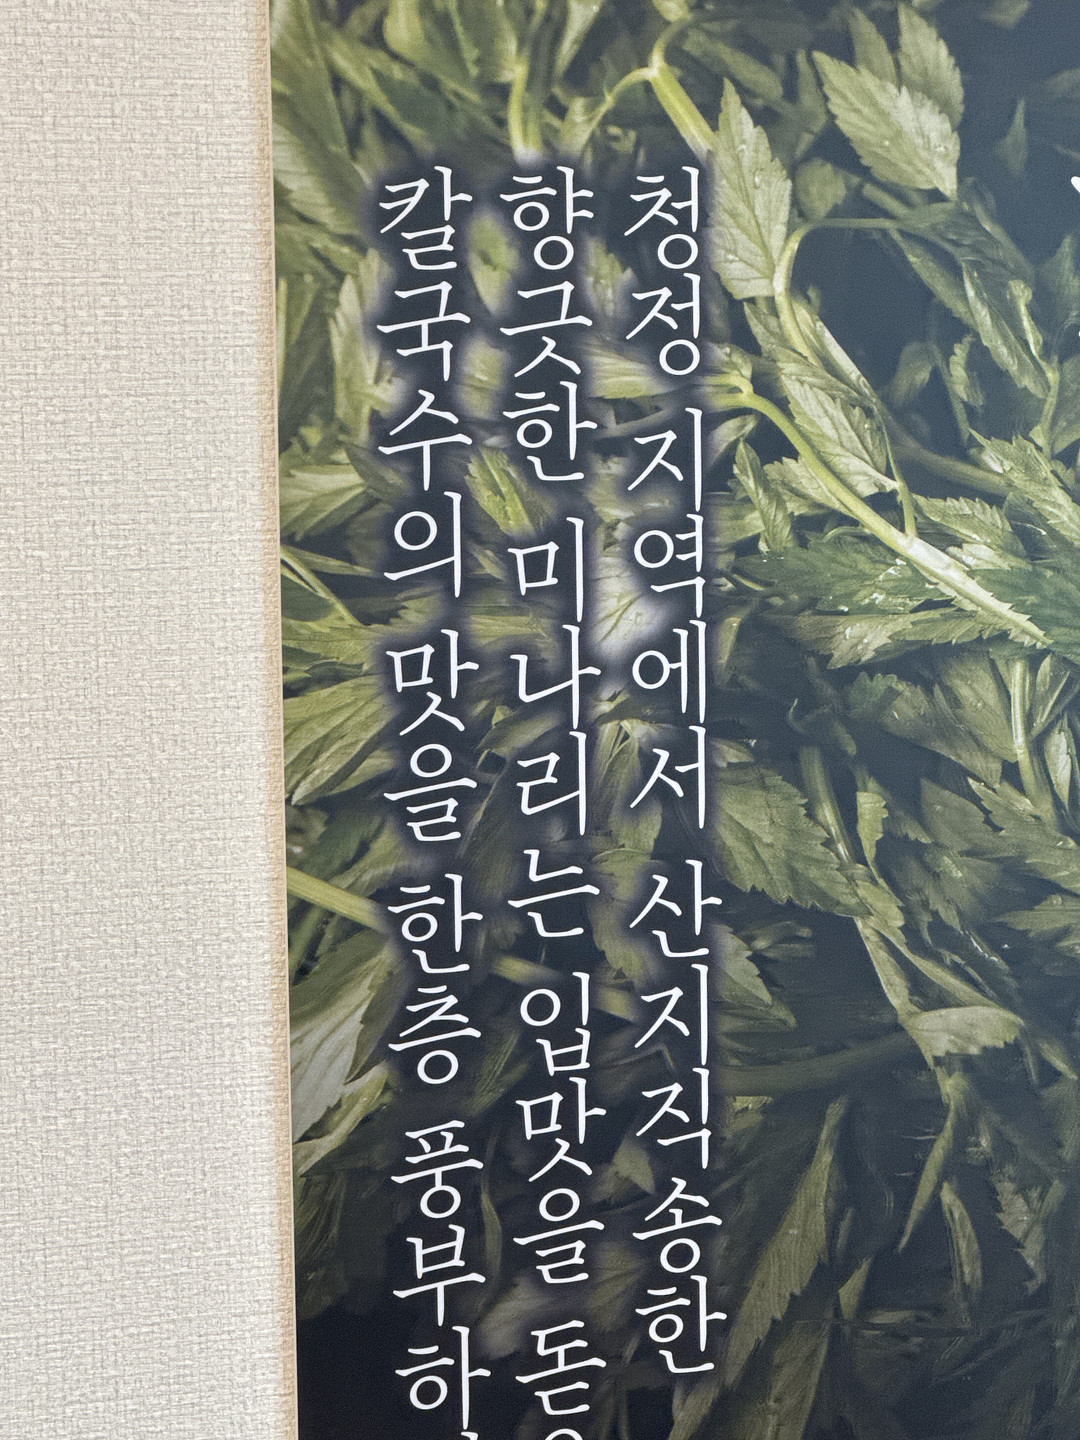 청정 지역에서 산지직송한
향긋한 미나리는 입맛을
칼국수의 맛을 한층